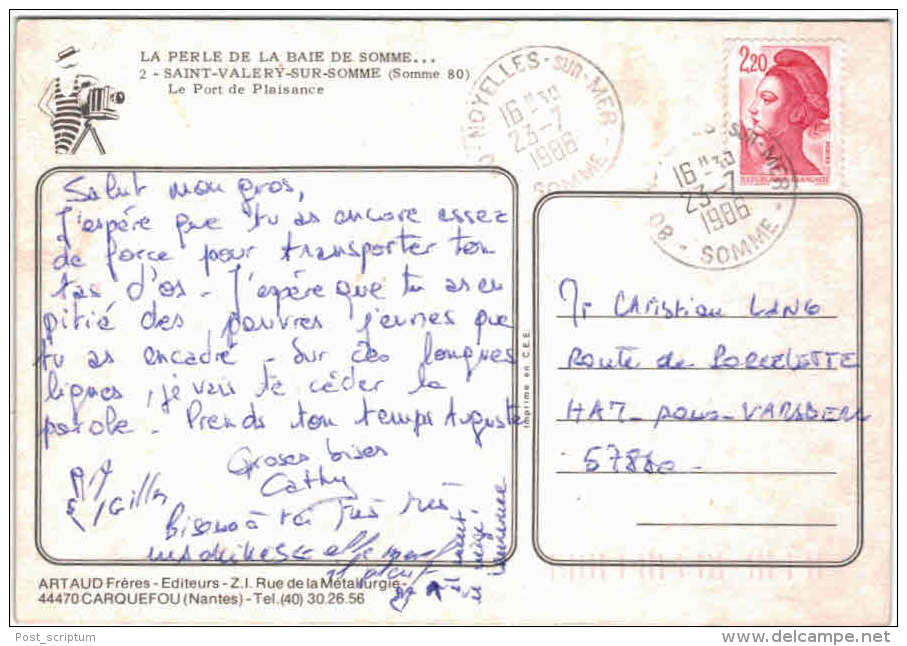 LA PERLE DE LA BAIE DE SOMME...
2 - SAINT-VALERY-SUR-SOMME (Somme 80)
Le Port de Plaisance
NOYELLES-SUR-MER
16 H 30
23-7
1986
SOMME
2,20
REPUBLIQUE FRANÇAISE
SUR-MER
16 H 30
23-7
1986
80 - SOMME
Salut mon gros,
J'espère que tu as encore assez
de force pour transporter ton
tas d'os - J'espère que tu as eu
pitié des pauvres jeunes que
tu as encadré - Sur ces longues
lignes, je vais te céder la
parole - Prends ton temps Auguste
Groses bises
Cathy
Imprimé en C.E.E.
Mr Christian LANG
Route de PORCELETTE
HAM-sous-VARSBERG
57880
ARTAUD Frères - Editeurs - Z.I. Rue de la Métallurgie -
44470 CARQUEFOU (Nantes) - Tel. (40) 30.26.56
Post_scriptum
delcampe.net